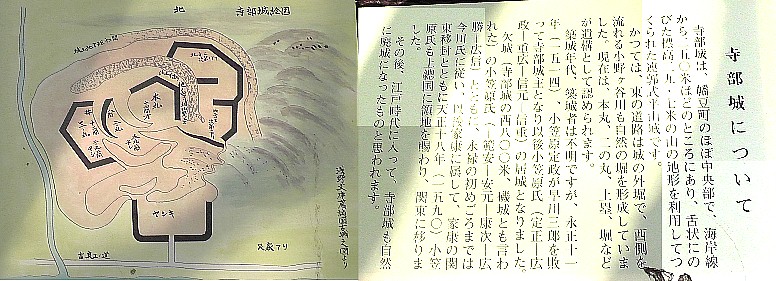 寺部城について
寺部城は、幡豆町のほぼ中央部で、海岸線
から、五〇米ほどのところにあり、舌状にの
びた標高二九・七米の山の地形を利用してつ
くられた連郭式平山城です。
かつては、東の道路は城の外堀で、西側を
流れる小野ヶ谷川も自然の堀を形成していま
した。現在は、本丸、二の丸、土塁、堀など
が遺構として認められます。
築城年代、築城者は不明ですが、永正十一
年（一五一四）、小笠原定政が早川三郎を敗
って寺部城主となり以後小笠原氏（定正―広
政―重広―信元―信重）の居城となりました。
欠城（寺部城の西八〇〇米、磯城とも言わ
れた）の小笠原氏（範安―安元―康次―広
勝―広信）とともに、永禄の初めごろまでは
今川氏に従い、以後家康に属して、家康の関
東移封とともに天正十八年（一五九〇）小笠
原氏も上総国に領地を賜わり、関東に移りま
した。
その後、江戸時代に入って、寺部城も自然
に廃城になったものと思われます。
寺部城絵図
北
本丸
二ノ丸
ヤシキ
吉良エノ道
浅野文庫蔵諸国古城之図より